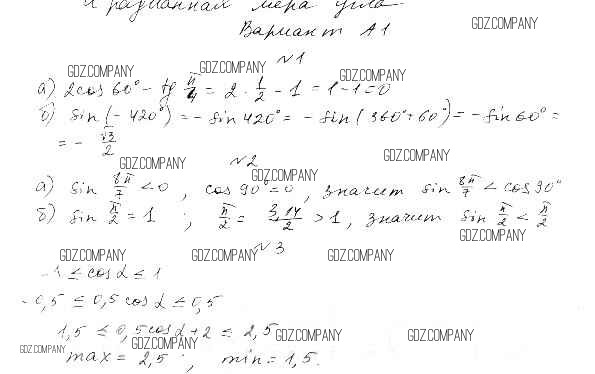 и радианная мера угла
Вариант А1
GDZ.COMPANY
№1
GDZ.COMPANY GDZ.COMPANY GDZ.COMPANY
а) 2cos60° - tg π/4 = 2 · 1/2 - 1 = 1-1=0
б) sin(-420°) = - sin420° = - sin(360°+60°) = - sin60° =
= - √3/2
GDZ.COMPANY №2 GDZ.COMPANY
GDZ.COMPANY
а) sin 8π/7 < 0, cos90°=0, значит sin 8π/7 < cos90°
б) sin π/2 = 1; π/2 = 3,14/2 > 1, значит sin π/2 < π/2
GDZ.COMPANY
GDZ.COMPANY GDZ.COMPANY №3 GDZ.COMPANY
-1 ≤ cosα ≤ 1
-0,5 ≤ 0,5cosα ≤ 0,5
1,5 ≤ 0,5cosα+2 ≤ 2,5
GDZ.COMPANY GDZ.COMPANY GDZ.COMPANY GDZ.COMPANY
max = 2,5; min = 1,5.